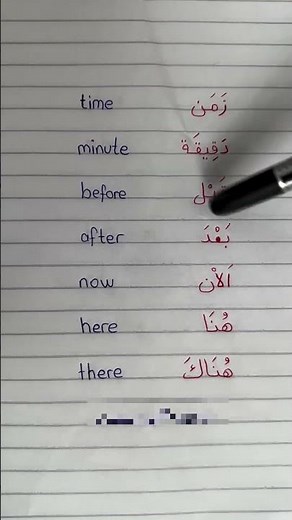 time زَمَن
minute دَقِيقَة
before
after بَعْدَ
now اَلاْن
here هُنَا
there هُنَاكَ